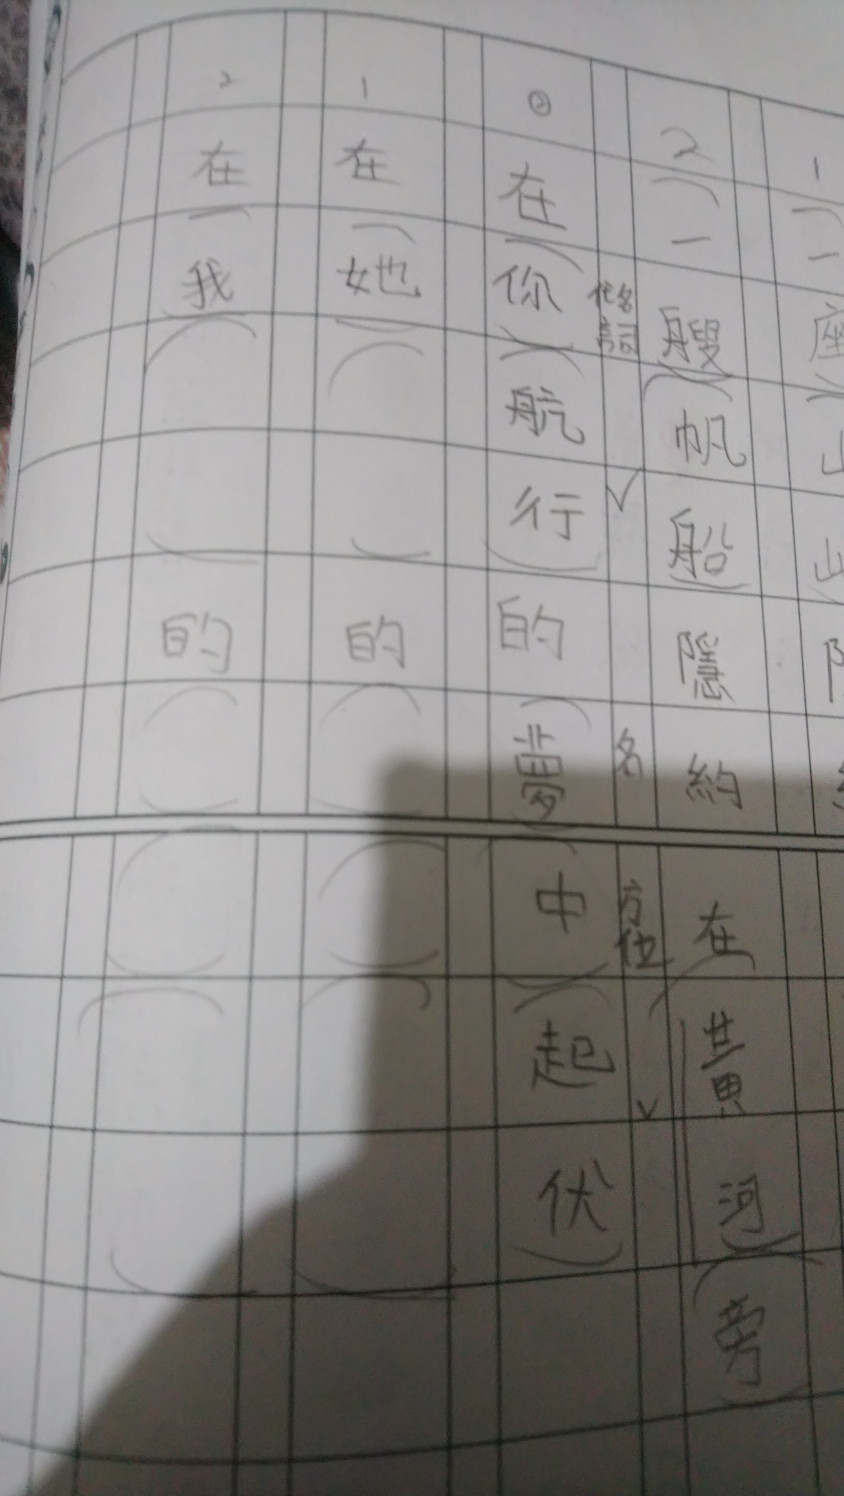 1
一座山
2
一艘帆船隱約在黃河旁
代名詞
v
名
方位
v
②
在你航行的夢中起伏
1
在她的
2
在我的